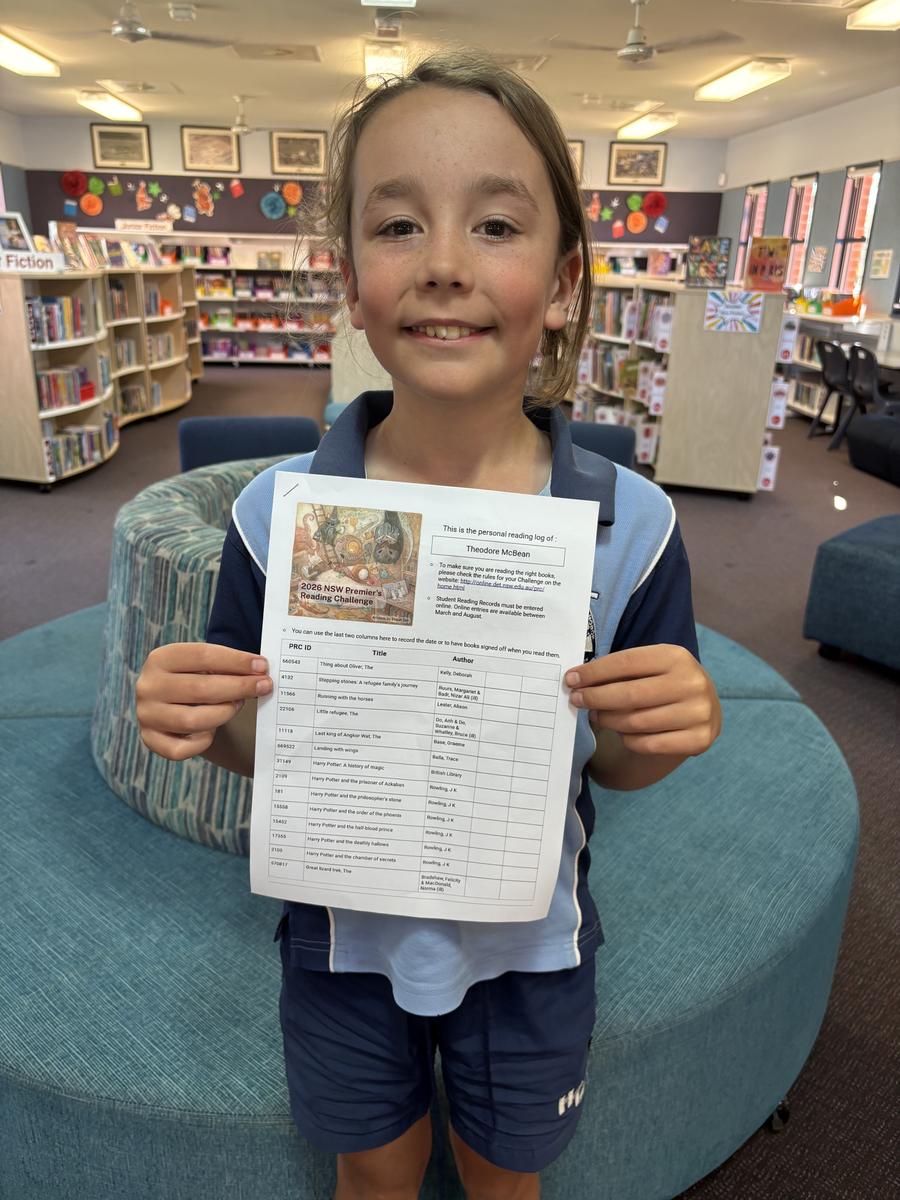 Junior Fiction
r Fiction
This is the personal reading log of :
Theodore McBean
2026 NSW Premier's
Reading Challenge
To make sure you are reading the right books,
please check the rules for your Challenge on the
website: http://online.det.nsw.edu.au/prc/
home.html
Student Reading Records must be entered
online. Online entries are available between
March and August.
You can use the last two columns here to record the date or to have books signed off when you read them.
PRC ID Title Author
660543 Thing about Oliver, The Kelly, Deborah
4132 Stepping stones: A refugee family's journey Ruurs, Margriet &
Badr, Nizar Ali (ill)
11566 Running with the horses Lester, Alison
22106 Little refugee, The Do, Anh & Do,
Suzanne &
Whatley, Bruce (ill)
11118 Last king of Angkor Wat, The Base, Graeme
669522 Landing with wings Balla, Trace
31149 Harry Potter: A history of magic British Library
2109 Harry Potter and the prisoner of Azkaban Rowling, J K
181 Harry Potter and the philosopher's stone Rowling, J K
15558 Harry Potter and the order of the phoenix Rowling, J K
15402 Harry Potter and the half-blood prince Rowling, J K
Harry Potter and the deathly hallows Rowling, J K
Harry Potter and the chamber of secrets Rowling, J K
Great lizard trek, The Bradshaw, Felicity
& MacDonald,
Norma (ill)